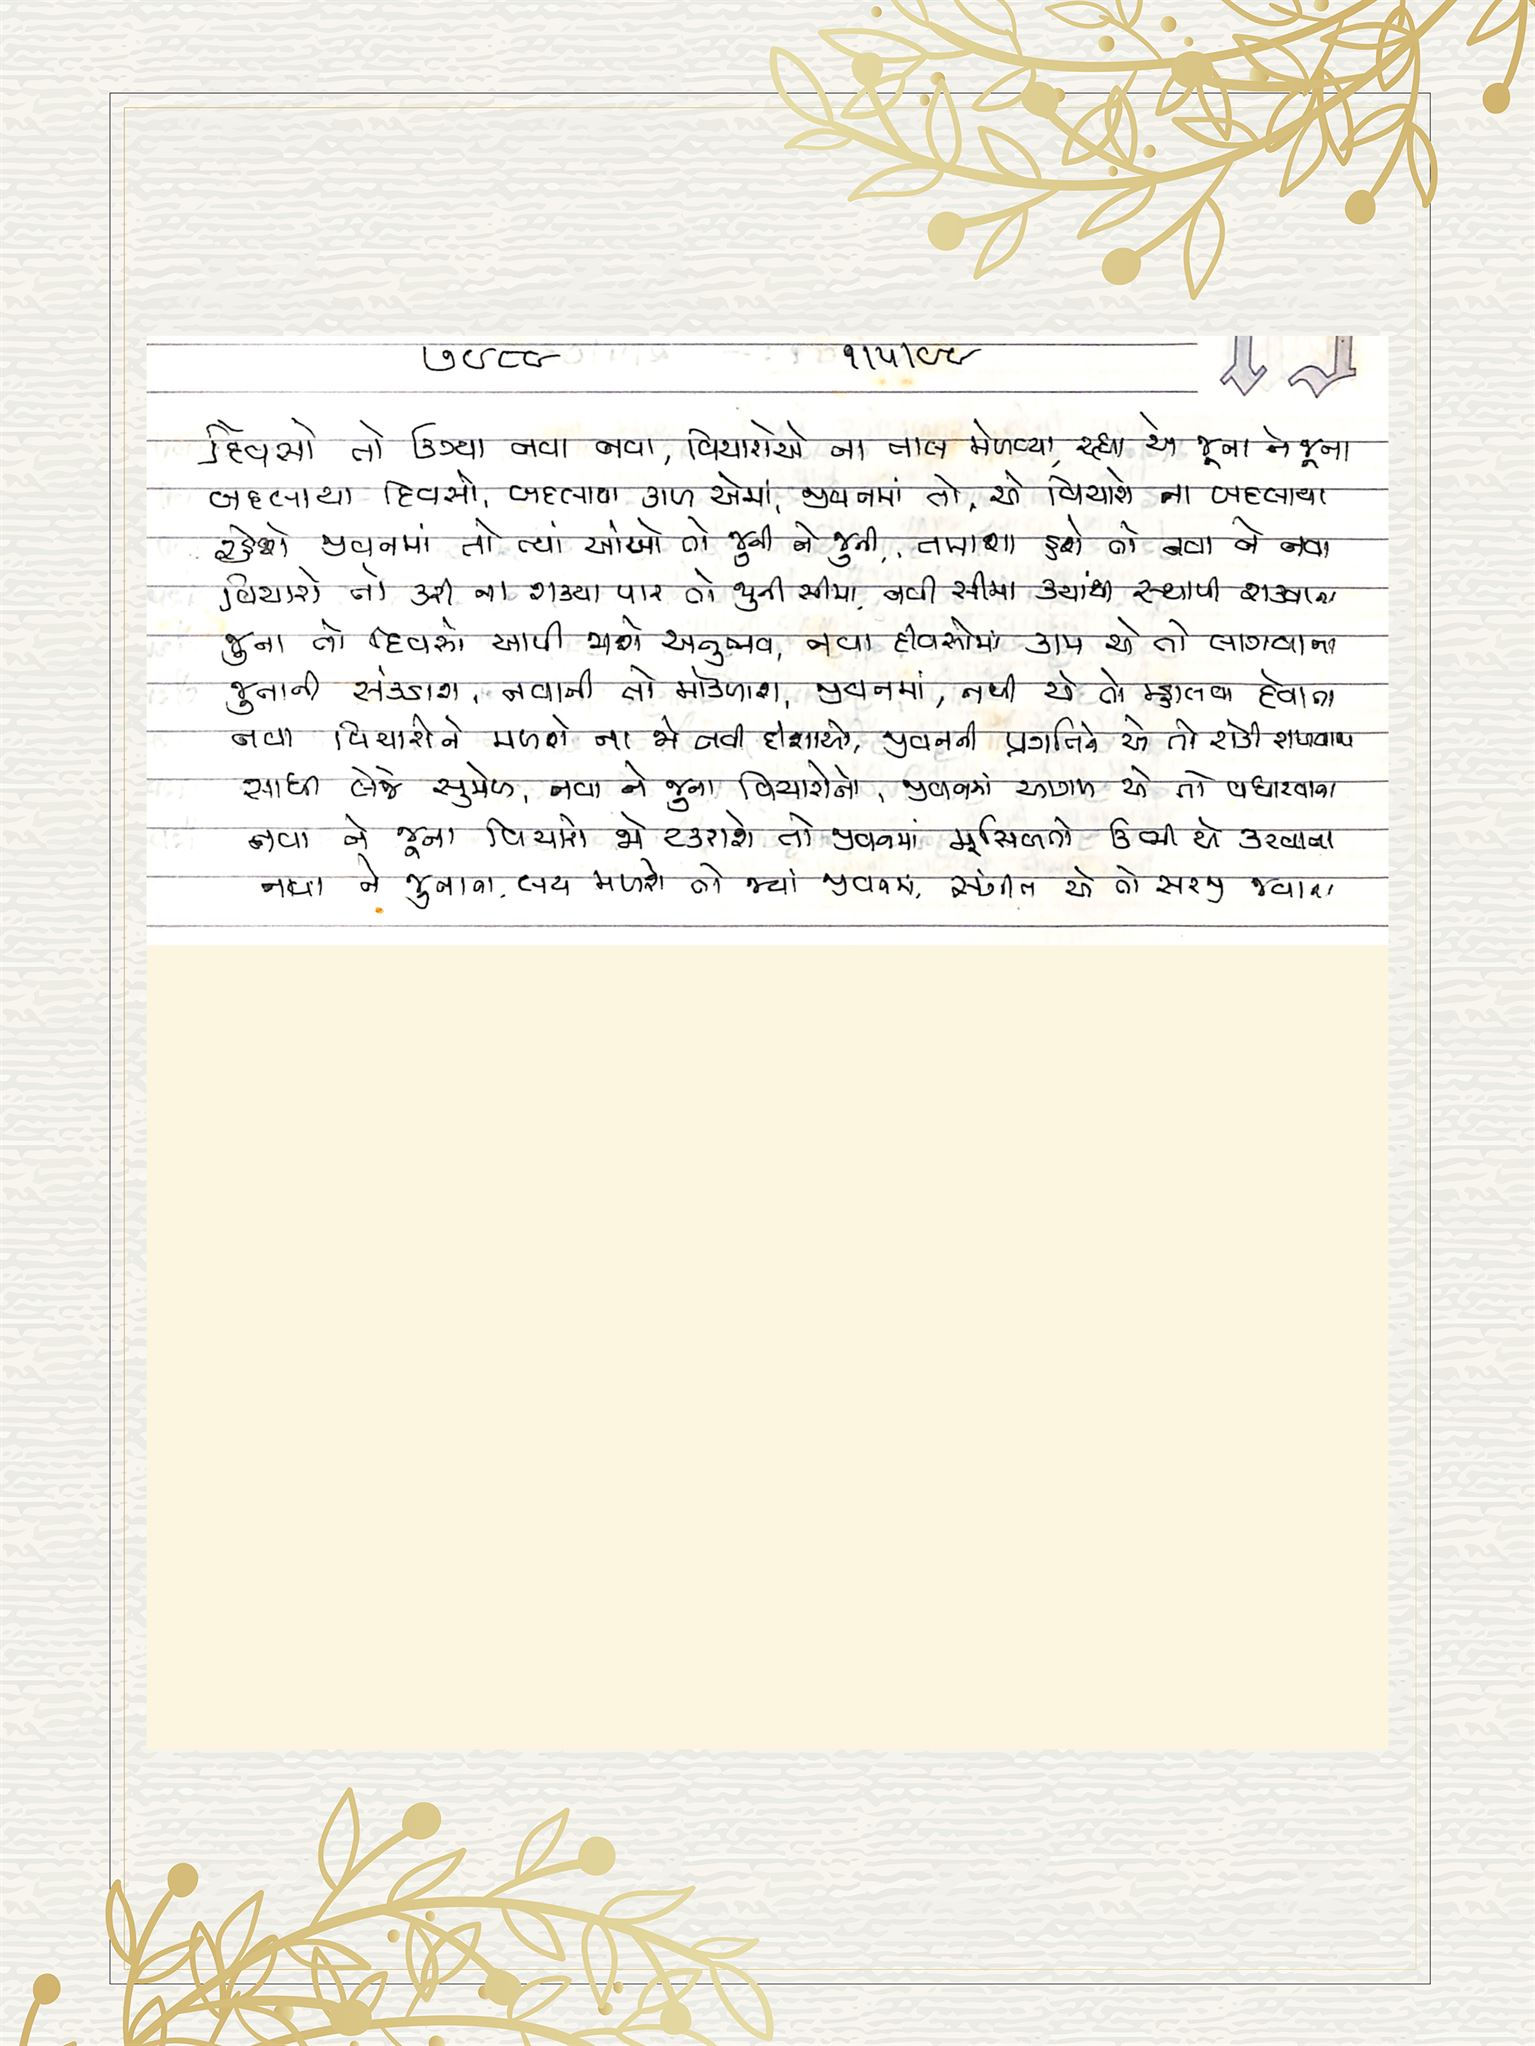 ૭૯૮૯ ૧/૫/૯૯
દિવસો તો ઉગ્યા નવા નવા, વિચારોએ ના તાલ મેળવ્યા, રહ્યાં એ જૂના ને જૂના
બદલાયા દિવસો, બદલાવા કાળ એમાં, જીવનમાં તો, એ વિચારો ના બદલાયા
રહેશે જીવનમાં તો ત્યાં આંખો તો જુની ને જુની, તમાશા હશે તો નવા ને નવા
વિચારો તો કરી ના શક્યા પાર તો જુની સીમા, નવી સીમા ક્યાંથી સ્થાપી શકવાના
જુના તો દિવસો આપી જાશે અનુભવ, નવા દીવસોમાં કામ એ તો લાગવાના
જુનાની સંકડાશ, નવાની તો મોકળાશ, જીવનમાં, નથી એ તો ભુલાવા દેવાના
નવા વિચારોને મળશે ના જો નવી દીશાઓ, જીવનની પ્રગતિને એ તો રોકી રાખવાના
સાધી લેજે સુમેળ, નવા ને જુના વિચારોનો, જીવનમાં આગળ એ તો વધારવાના
નવા ને જૂના વિચારો જો ટકરાશે તો જીવનમાં મૂસિબતો ઉભી એ કરવાના
નવા ને જુનાના લય મળશે તો જ્યાં જીવનમાં, સંગીત એ તો સરજી જવાના